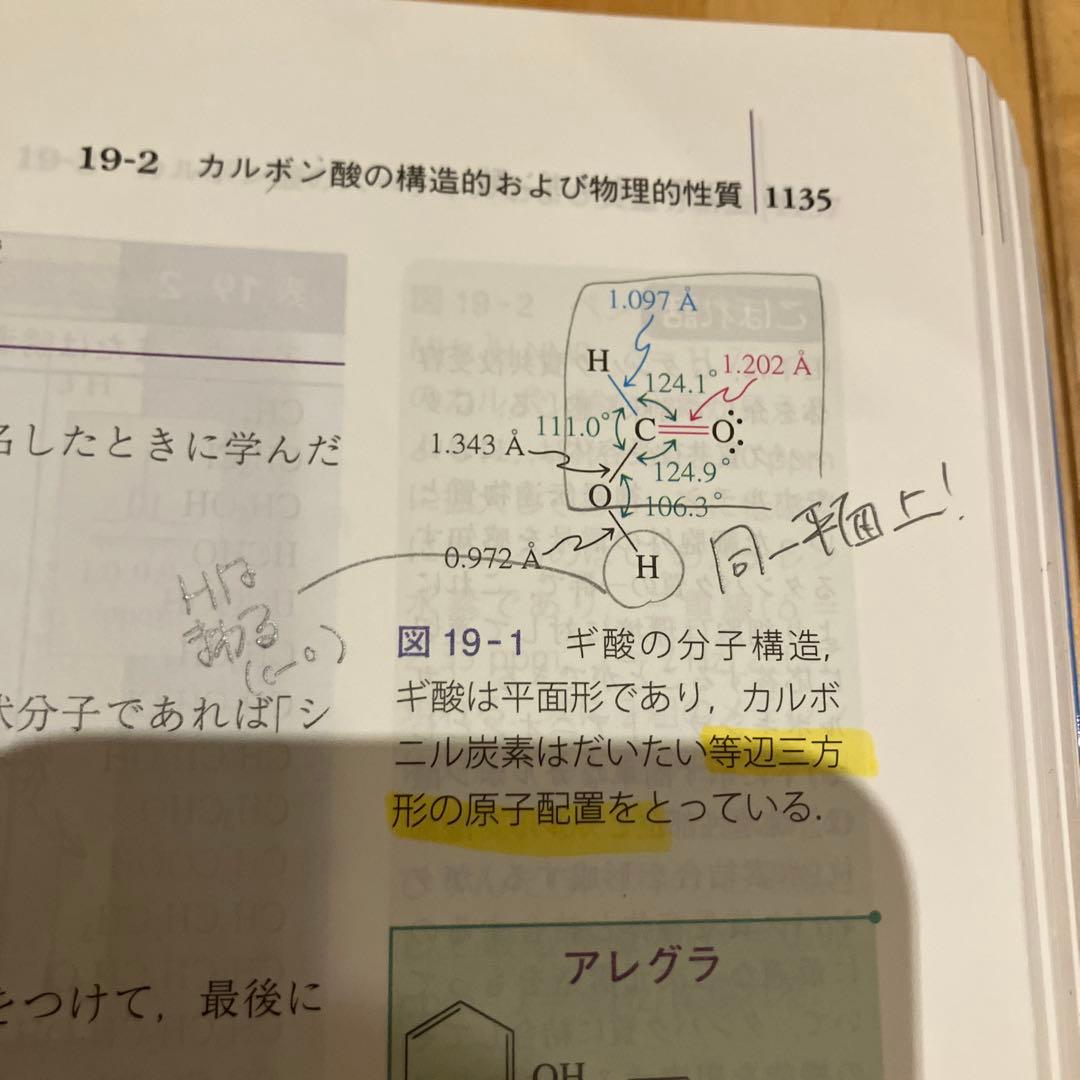 19-2 カルボン酸の構造的および物理的性質 1135
1.097 Å
H
124.1°
1.202 Å
111.0°
C
O
1.343 Å
124.9°
O
106.3°
0.972 Å
H
同一平面上!
Hは
まわる
名したときに学んだ
状分子であれば「シ
をつけて，最後に
図 19-1 ギ酸の分子構造，
ギ酸は平面形であり，カルボ
ニル炭素はだいたい等辺三方
形の原子配置をとっている．
アレグラ
OH